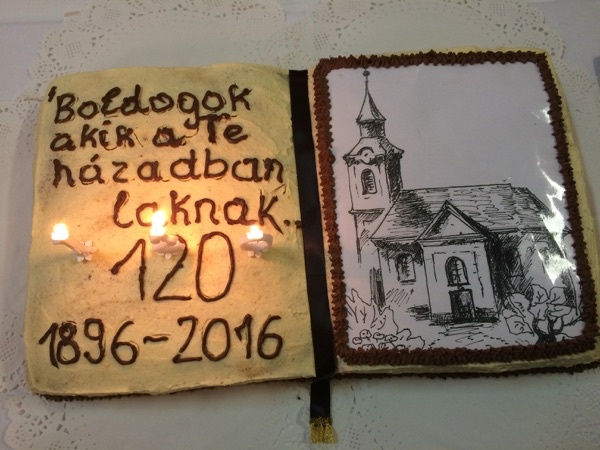 'Boldogok
akik a Te
házadban
laknak..
120
1896-2016